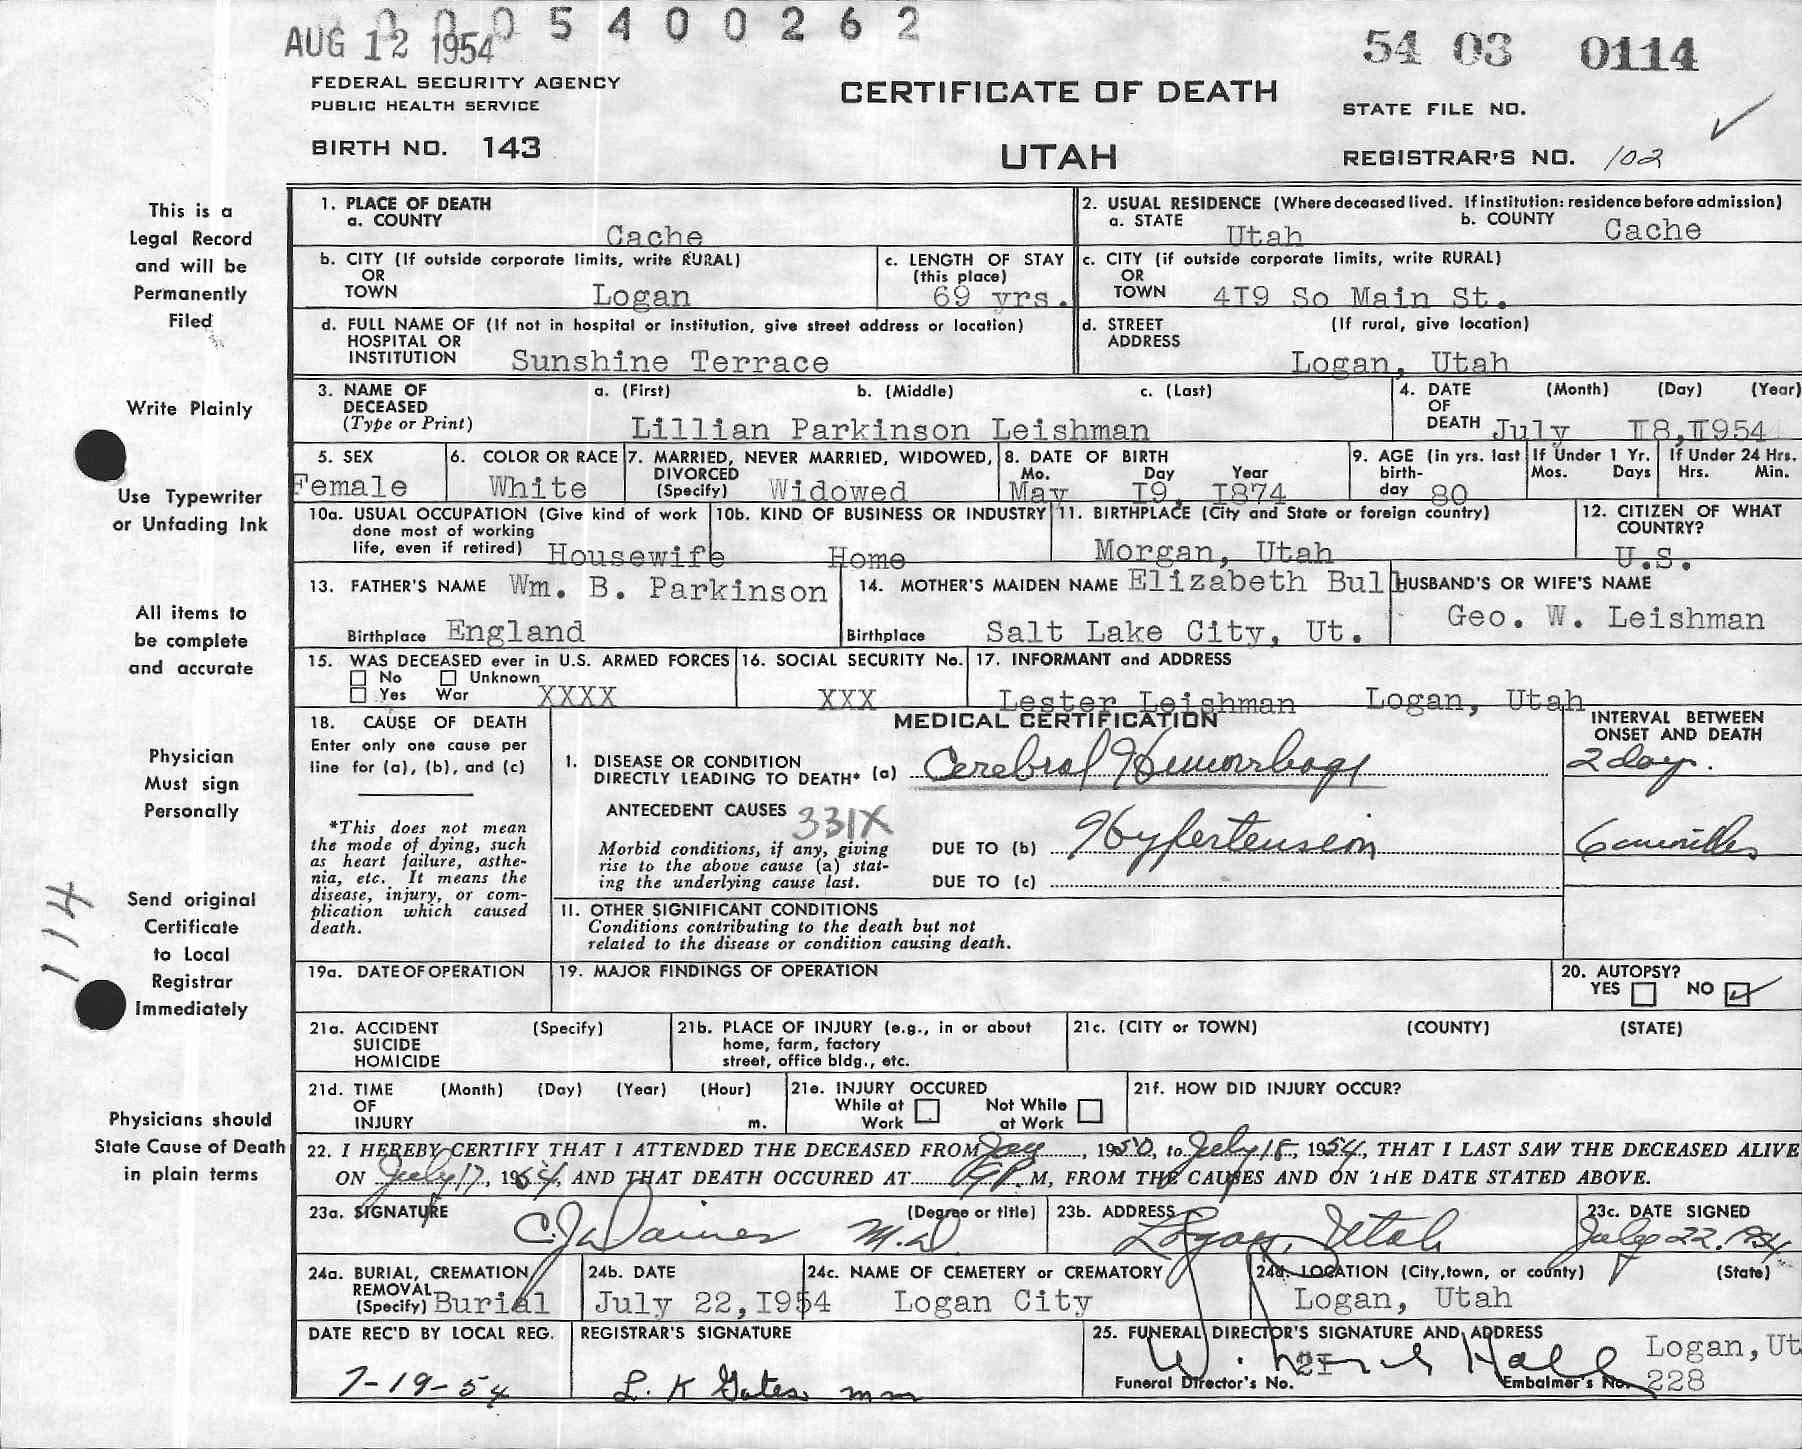 0005400262
AUG 12 1954
54 03 0114
FEDERAL SECURITY AGENCY
PUBLIC HEALTH SERVICE
CERTIFICATE OF DEATH
STATE FILE NO.
BIRTH NO. 143
UTAH
REGISTRAR'S NO. 102
This is a
Legal Record
and will be
Permanently
Filed
Write Plainly
Use Typewriter
or Unfading Ink
All items to
be complete
and accurate
Physician
Must sign
Personally
Send original
Certificate
to Local
Registrar
Immediately
114
Physicians should
State Cause of Death
in plain terms
1. PLACE OF DEATH
a. COUNTY
Cache
2. USUAL RESIDENCE (Where deceased lived. If institution: residence before admission)
a. STATE Utah b. COUNTY Cache
b. CITY (If outside corporate limits, write RURAL)
OR
TOWN Logan
c. LENGTH OF STAY
(this place)
69 yrs.
c. CITY (if outside corporate limits, write RURAL)
OR
TOWN 4I9 So Main St.
d. FULL NAME OF (If not in hospital or institution, give street address or location)
HOSPITAL OR
INSTITUTION Sunshine Terrace
d. STREET (If rural, give location)
ADDRESS
Logan, Utah
3. NAME OF a. (First) b. (Middle) c. (Last)
DECEASED
(Type or Print) Lillian Parkinson Leishman
4. DATE (Month) (Day) (Year)
OF
DEATH July I8, I954
5. SEX
Female
6. COLOR OR RACE
White
7. MARRIED, NEVER MARRIED, WIDOWED,
DIVORCED
(Specify) Widowed
8. DATE OF BIRTH
Mo. Day Year
May I9, I874
9. AGE (in yrs. last
birth-
day 80
If Under 1 Yr.
Mos. Days
If Under 24 Hrs.
Hrs. Min.
10a. USUAL OCCUPATION (Give kind of work
done most of working
life, even if retired) Housewife
10b. KIND OF BUSINESS OR INDUSTRY
Home
11. BIRTHPLACE (City and State or foreign country)
Morgan, Utah
12. CITIZEN OF WHAT
COUNTRY?
U.S.
13. FATHER'S NAME Wm. B. Parkinson
Birthplace England
14. MOTHER'S MAIDEN NAME Elizabeth Bull
Birthplace Salt Lake City, Ut.
HUSBAND'S OR WIFE'S NAME
Geo. W. Leishman
15. WAS DECEASED ever in U.S. ARMED FORCES
No Unknown
Yes War XXXX
16. SOCIAL SECURITY No.
XXX
17. INFORMANT and ADDRESS
Lester Leishman Logan, Utah
18. CAUSE OF DEATH
Enter only one cause per
line for (a), (b), and (c)
*This does not mean
the mode of dying, such
as heart failure, asthe-
nia, etc. It means the
disease, injury, or com-
plication which caused
death.
MEDICAL CERTIFICATION
INTERVAL BETWEEN
ONSET AND DEATH
1. DISEASE OR CONDITION
DIRECTLY LEADING TO DEATH* (a) Cerebral Hemorrhage
2 days.
ANTECEDENT CAUSES 331X
Morbid conditions, if any, giving
rise to the above cause (a) stat-
ing the underlying cause last.
DUE TO (b) Hypertension
6 months
DUE TO (c)
11. OTHER SIGNIFICANT CONDITIONS
Conditions contributing to the death but not
related to the disease or condition causing death.
19a. DATE OF OPERATION
19. MAJOR FINDINGS OF OPERATION
20. AUTOPSY?
YES NO
21a. ACCIDENT (Specify)
SUICIDE
HOMICIDE
21b. PLACE OF INJURY (e.g., in or about
home, farm, factory
street, office bldg., etc.
21c. (CITY or TOWN) (COUNTY) (STATE)
21d. TIME (Month) (Day) (Year) (Hour)
OF
INJURY m.
21e. INJURY OCCURED
While at Not While
Work at Work
21f. HOW DID INJURY OCCUR?
22. I HEREBY CERTIFY THAT I ATTENDED THE DECEASED FROM Jay, 1950, to July 18, 1954, THAT I LAST SAW THE DECEASED ALIVE
ON July 17, 1954, AND THAT DEATH OCCURED AT 9P.M, FROM THE CAUSES AND ON THE DATE STATED ABOVE.
23a. SIGNATURE (Degree or title)
C.J. Daines M.D
23b. ADDRESS
Logan, Utah
23c. DATE SIGNED
July 22, 1954
24a. BURIAL, CREMATION
REMOVAL
(Specify) Burial
24b. DATE
July 22, I954
24c. NAME OF CEMETERY or CREMATORY
Logan City
24d. LOCATION (City, town, or county) (State)
Logan, Utah
DATE REC'D BY LOCAL REG.
7-19-54
REGISTRAR'S SIGNATURE
L. K Gates mm
25. FUNERAL DIRECTOR'S SIGNATURE AND ADDRESS
Hall
Logan, Ut
Funeral Director's No. 2I
Embalmer's No. 228